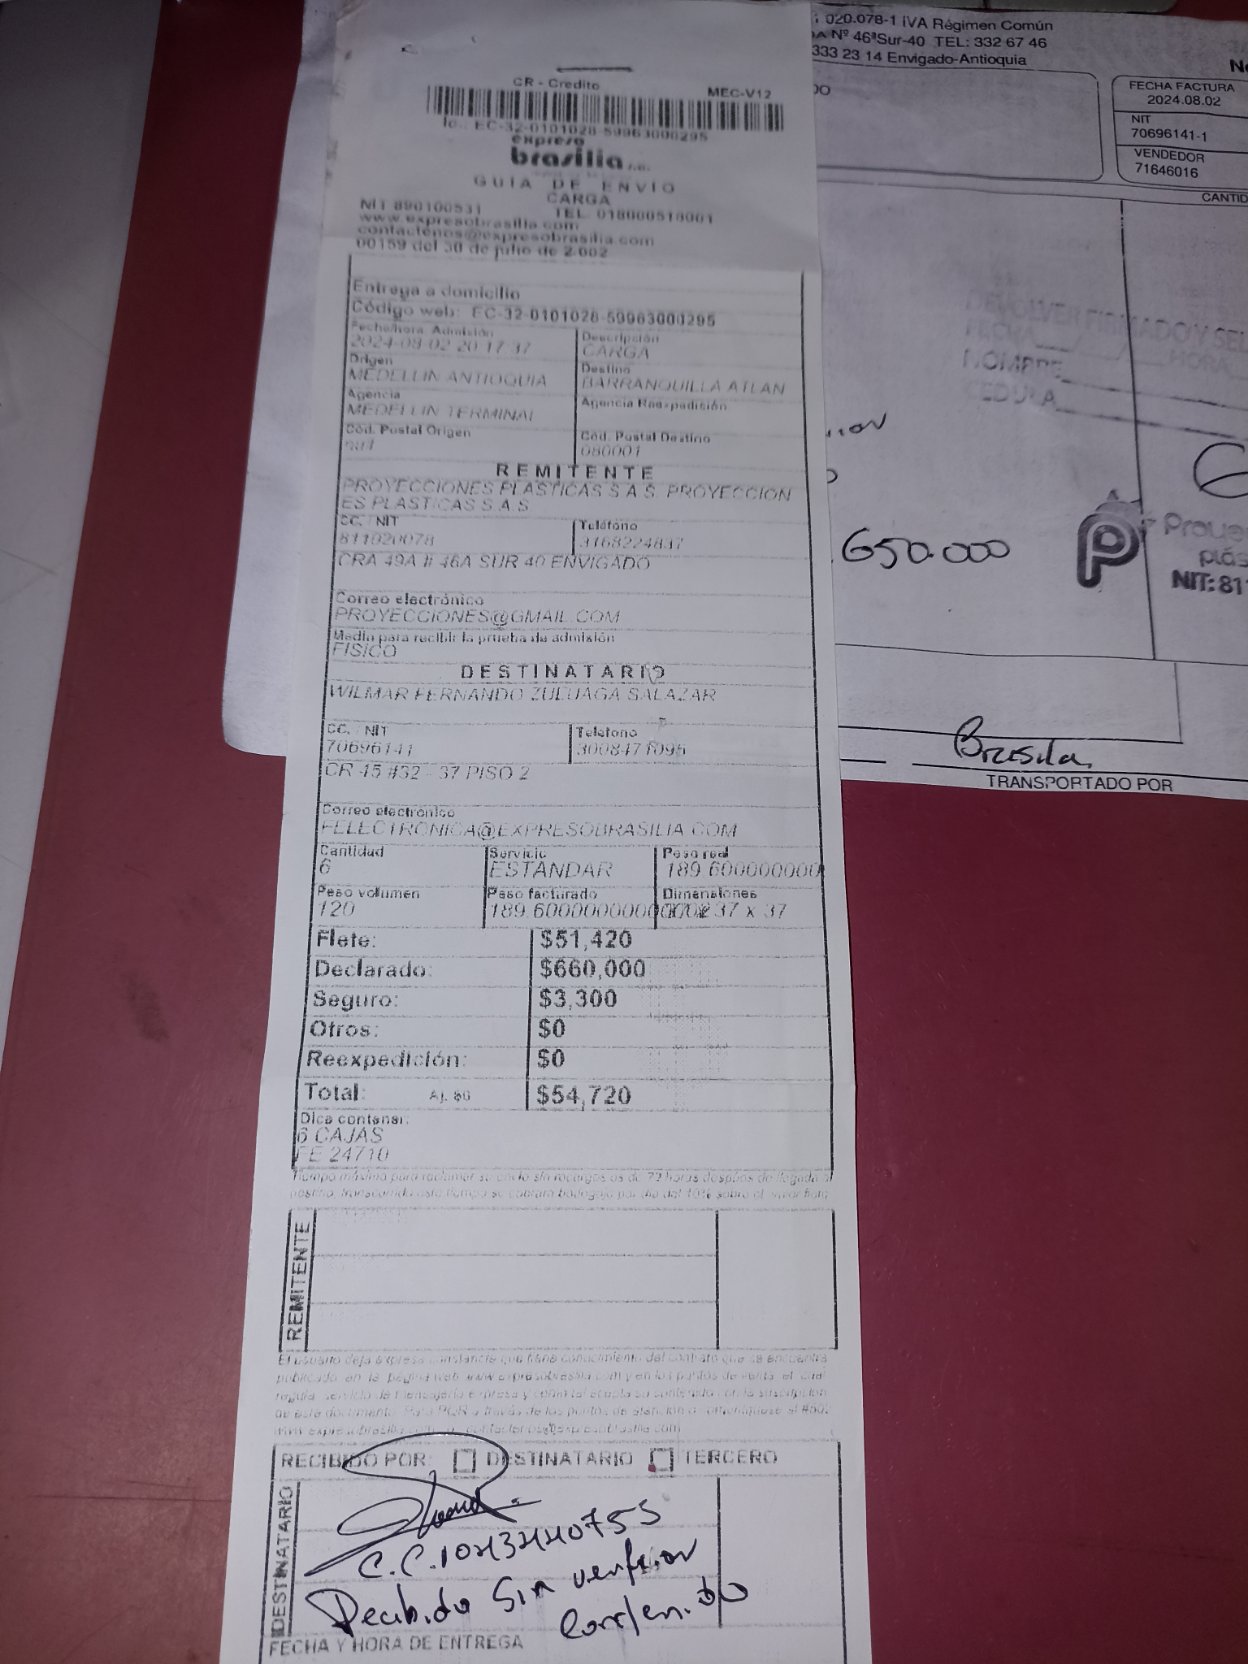 CR - Credito
MEC-V12
EC-32-0101028-59963000295
expreso
brasilia
GUIA DE ENVIO
CARGA
NIT 890100531 TEL. 018000518001
www.expresobrasilia.com
contactenos@expresobrasilia.com
00159 del 30 de julio de 2.002
Entrega a domicilio
Código web: EC-32-0101028-59963000295
Fecha/hora Admisión
2024-08-02 20:17:37
Descripción
CARGA
Origen
MEDELLIN ANTIOQUIA
Destino
BARRANQUILLA ATLAN
Agencia
MEDELLIN TERMINAL
Agencia Reexpedición
Cód. Postal Origen
null
Cód. Postal Destino
080001
REMITENTE
PROYECCIONES PLASTICAS S.A.S. PROYECCION
ES PLASTICAS S.A.S
CC. / NIT
811020078
Teléfono
3168224847
CRA 49A # 46A SUR 40 ENVIGADO
Correo electrónico
PROYECCIONES@GMAIL.COM
Medio para recibir la prueba de admisión
FISICO
DESTINATARIO
WILMAR FERNANDO ZULUAGA SALAZAR
CC. / NIT
70696141
Teléfono
3008471095
CR 45 #32 - 37 PISO 2
Correo electrónico
FELECTRONICA@EXPRESOBRASILIA.COM
Cantidad
6
Servicio
ESTANDAR
Peso real
189.600000000
Peso volumen
120
Peso facturado
Dimensiones
37 x 37
Flete: $51,420
Declarado: $660,000
Seguro: $3,300
Otros: $0
Reexpedición: $0
Total: Aj. $0 $54,720
Dice contener:
6 CAJAS
FE 24710
Tiempo máximo para reclamar su envío sin recargos es de 72 horas después de llegada a
REMITENTE
RECIBIDO POR: DESTINATARIO TERCERO
DESTINATARIO
C.C. 1043440755
Recibido Sin verificar
Contenido
FECHA Y HORA DE ENTREGA
020.078-1 IVA Régimen Común
Nº 46ªSur-40 TEL: 332 67 46
333 23 14 Envigado-Antioquia
FECHA FACTURA
2024.08.02
NIT
70696141-1
VENDEDOR
71646016
CANTID
DEVOLVER FIRMADO Y SEL
FECHA HORA
NOMBRE
CEDULA
650.000
plás
NIT:81
Brasilia
TRANSPORTADO POR